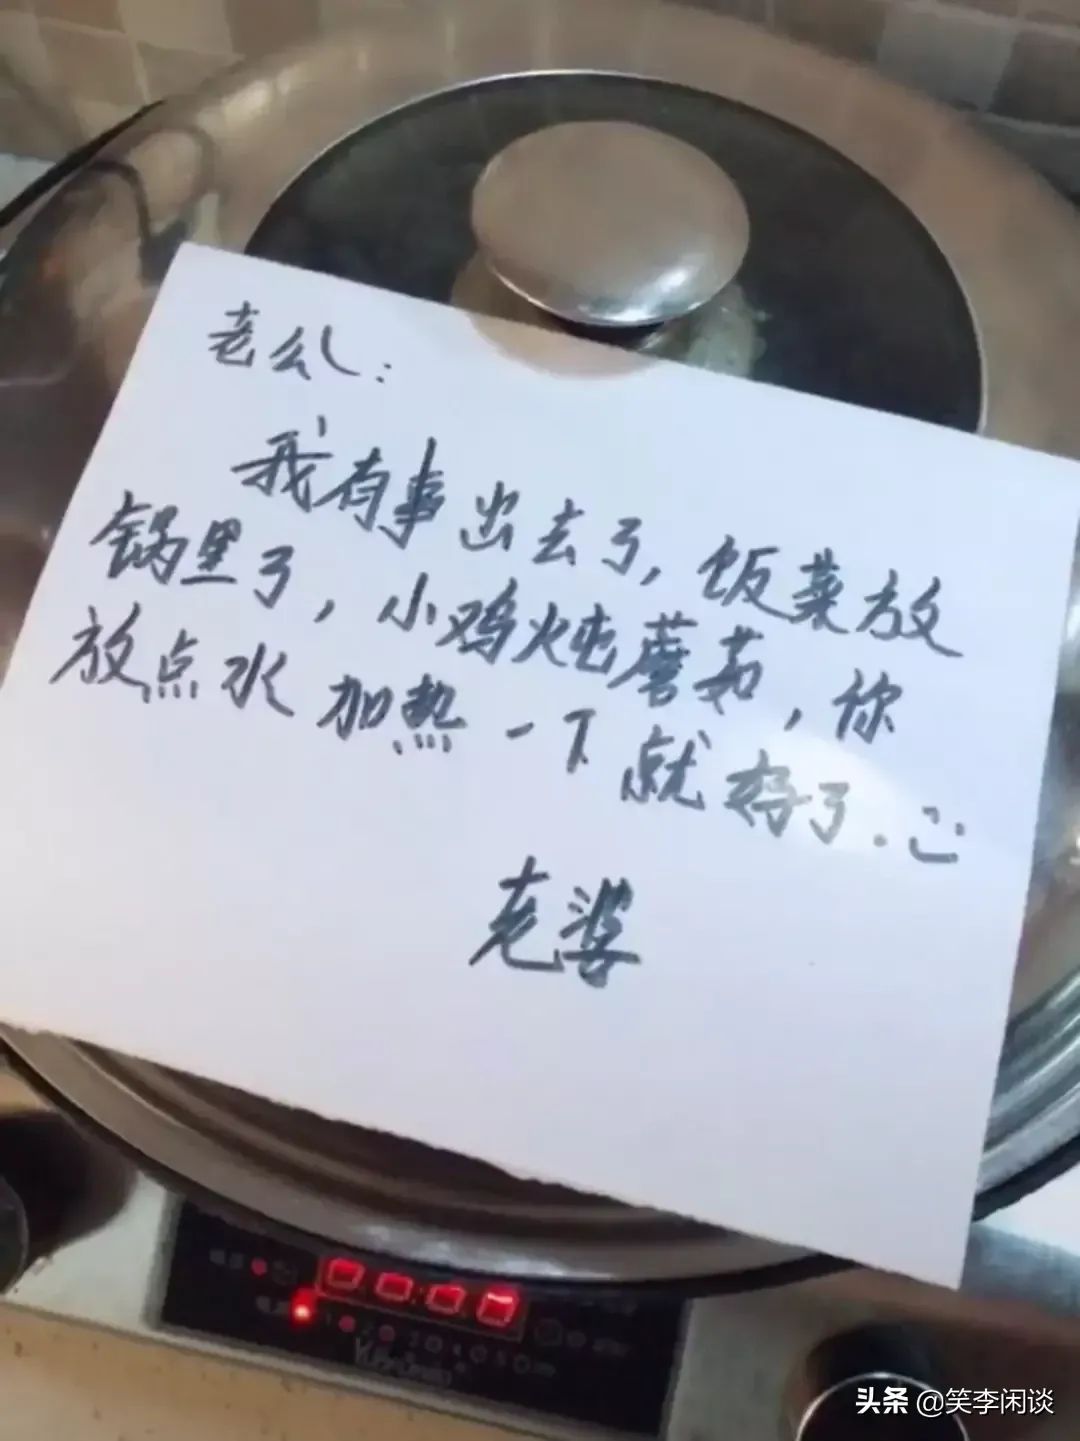 老公:
我有事出去了,饭菜放
锅里了,小鸡炖蘑菇,你
放点水加热一下就好了.
老婆
00:07
头条 @笑李闲谈